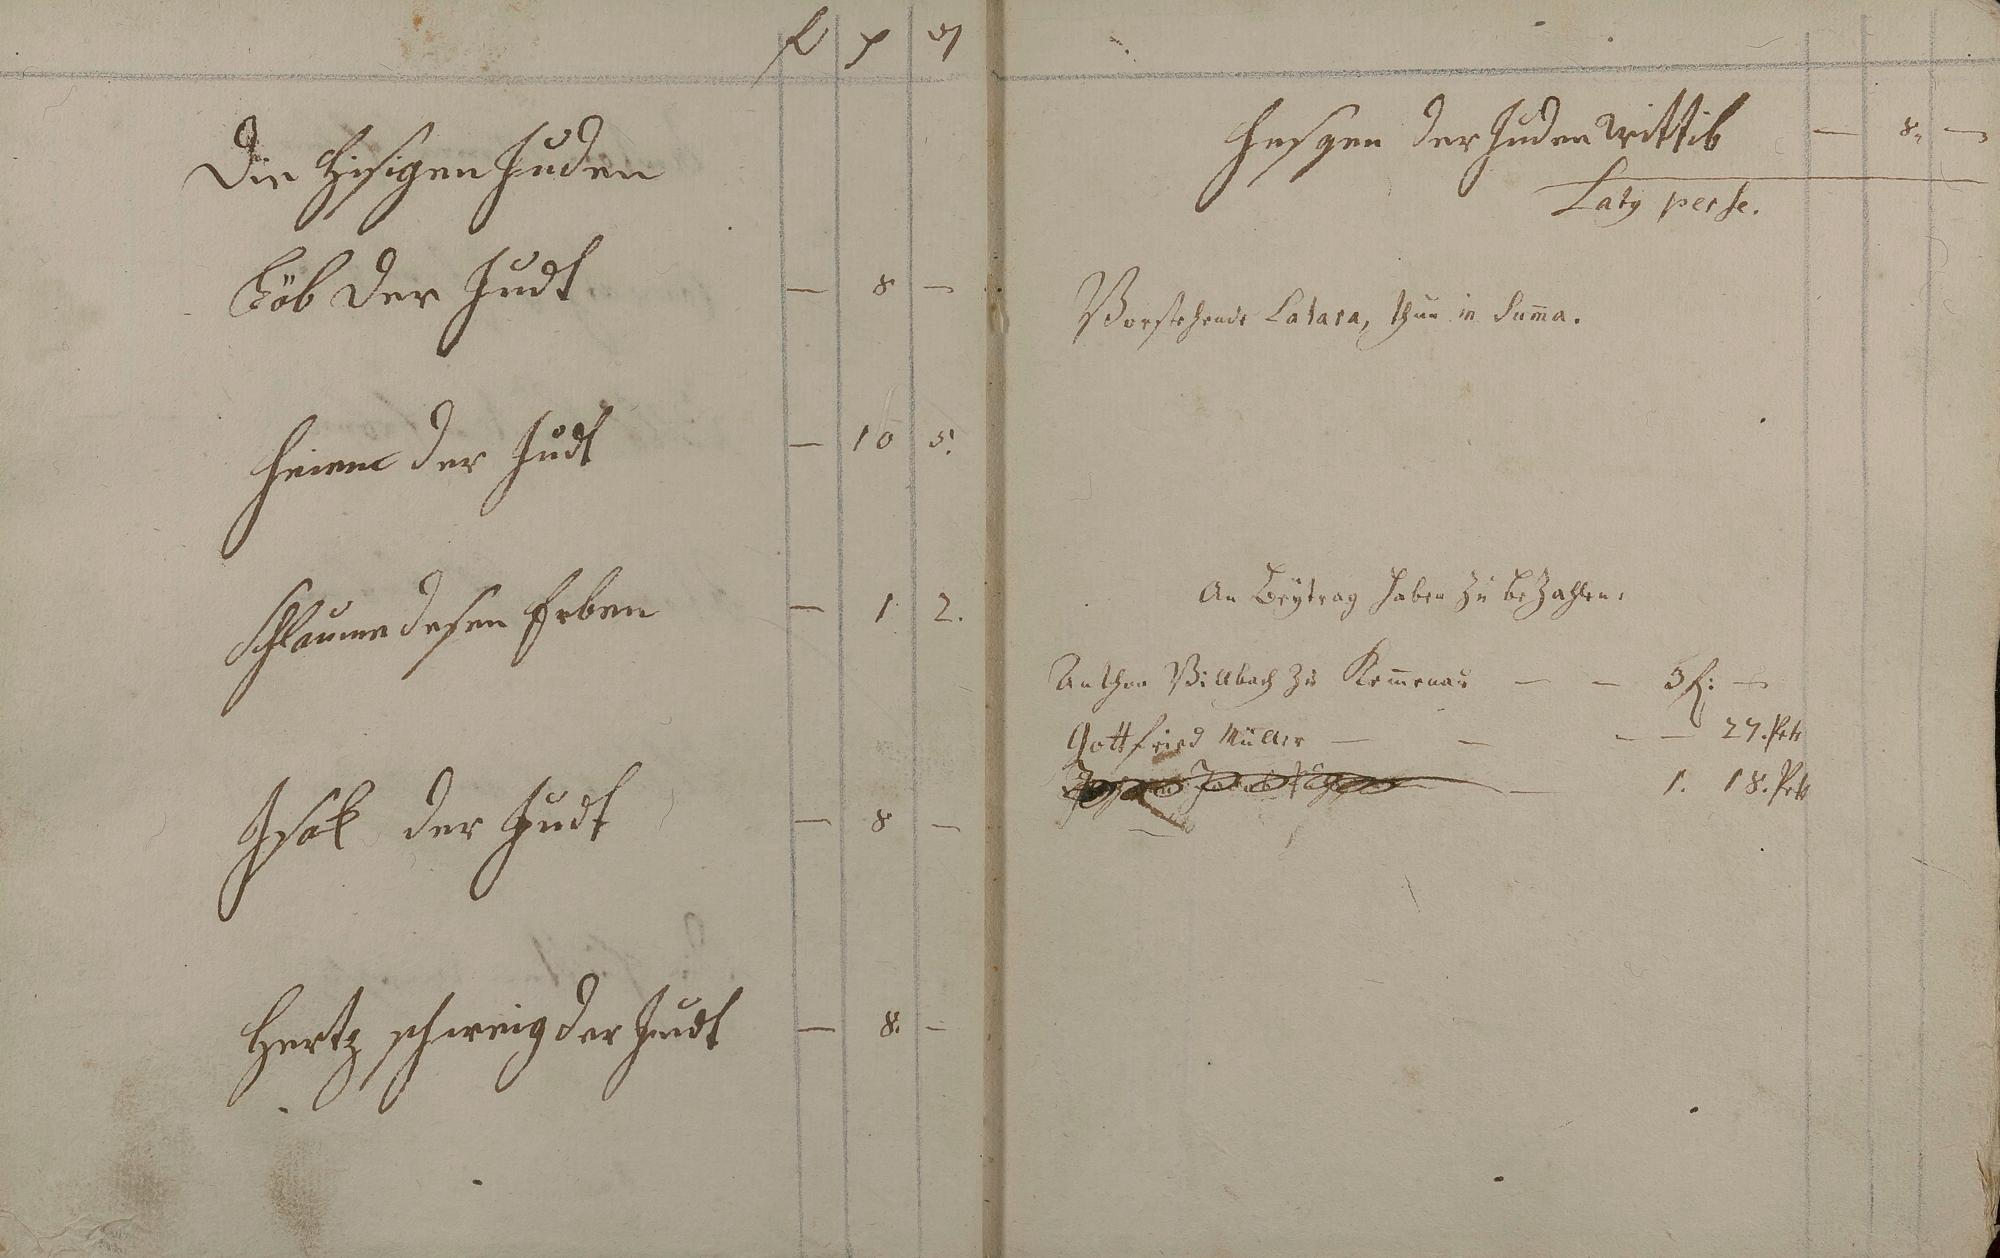 Die hisigen Juden
Löb der Judt — 8 —
der Judt — 10 5.
Schlaume desen Erben — 1 2.
Isak der Judt — 8 —
Hertz schweig der Judt — 8. —
der Juden Wittib — 8. —
Latg per se.
Vorstehende Latara, thun in Summa.
An Beÿtrag haben zu beZahlen.
Anthon Villbach zu Kemenau — — 3 f: —
Gottfried Müller — — — — 27.
— 1. 18.